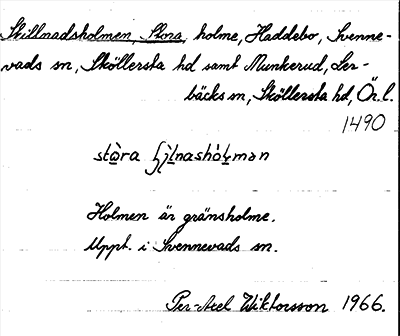 Skillnadsholmen, Stora, holme, Haddebo, Svenne-
vads sn, Sköllersta hd samt Munkerud, Ler-
bäcks sn, Sköllersta hd, Ör. l.
1490
Holmen är gränsholme.
Uppt. i Svennevads sn.
Per-Axel Wiktorsson 1966.